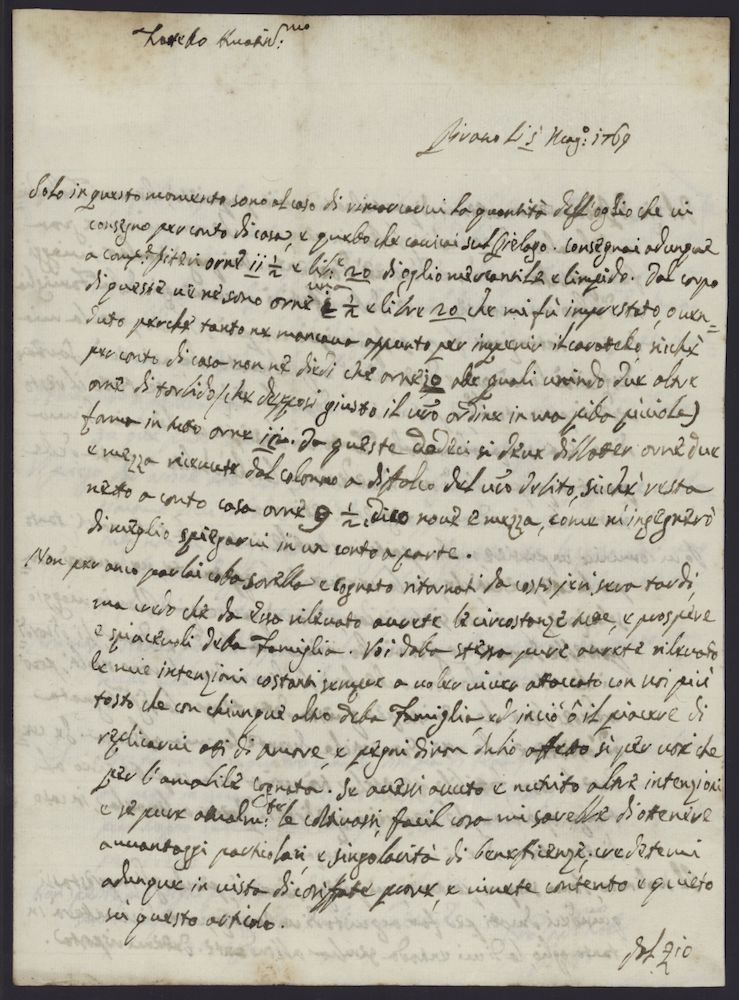 Fratello Amatis.mo
Pirano li 5 Mag.o 1769
Solo in questo momento sono al caso di rimarcarvi la quantità dell'oglio che vi
consegno per conto di casa, e quello che caricai sul Pielago. Consegnai adunque
a orne 11 1/2 e libre 20 di oglio mercantile e limpido. Dal corpo
di queste ve ne sono orne una 1/2 e libre 20 che mi fù imprestato, o ven=
duto perché tanto ne mancava appunto per impenir il caratello, sichè
per conto di casa non ne diedi che orne 10 alle quali unendo due altre
orne di torbido (che deposi giusto il vro ordine in una pilla picciola)
fanno in tutto orne 12. Da queste dodeci si deve diffalcar orne due
e mezza ricevute dal colonno a diffalco del vro debito, sichè resta
netto a conto casa orne 9 1/2 dico nove e mezza, come m'ingegnerò
di meglio spiegarvi in un conto a parte.
Non per anco parlai colla sorella e cognato ritornati da costì jeri sera tardi,
ma credo che da essa rilevato avrete le circostanze mie, e prospere
e spiacevoli della Famiglia. Voi dalla stessa pure avrete rilevato
le mie intenzioni costanti sempre a voler viver attaccato con voi più
tosto che con chiunque altro della Famiglia, ed in ciò ò il piacere di
replicarvi atti di amore, e pegni di non dubio affetto sì per voi che
per l'amabile cognata. Se avessi avuto e nutrito altre intenzioni
e se pure attualm.te le coltivassi, facil cosa mi sarebbe di ottenere
avvantaggi particolari, e singolarità di beneficenze. Credetemi
adunque in vista di cosiffatte prove, e vivete contento e quieto
sù questo articolo.
Del Zio